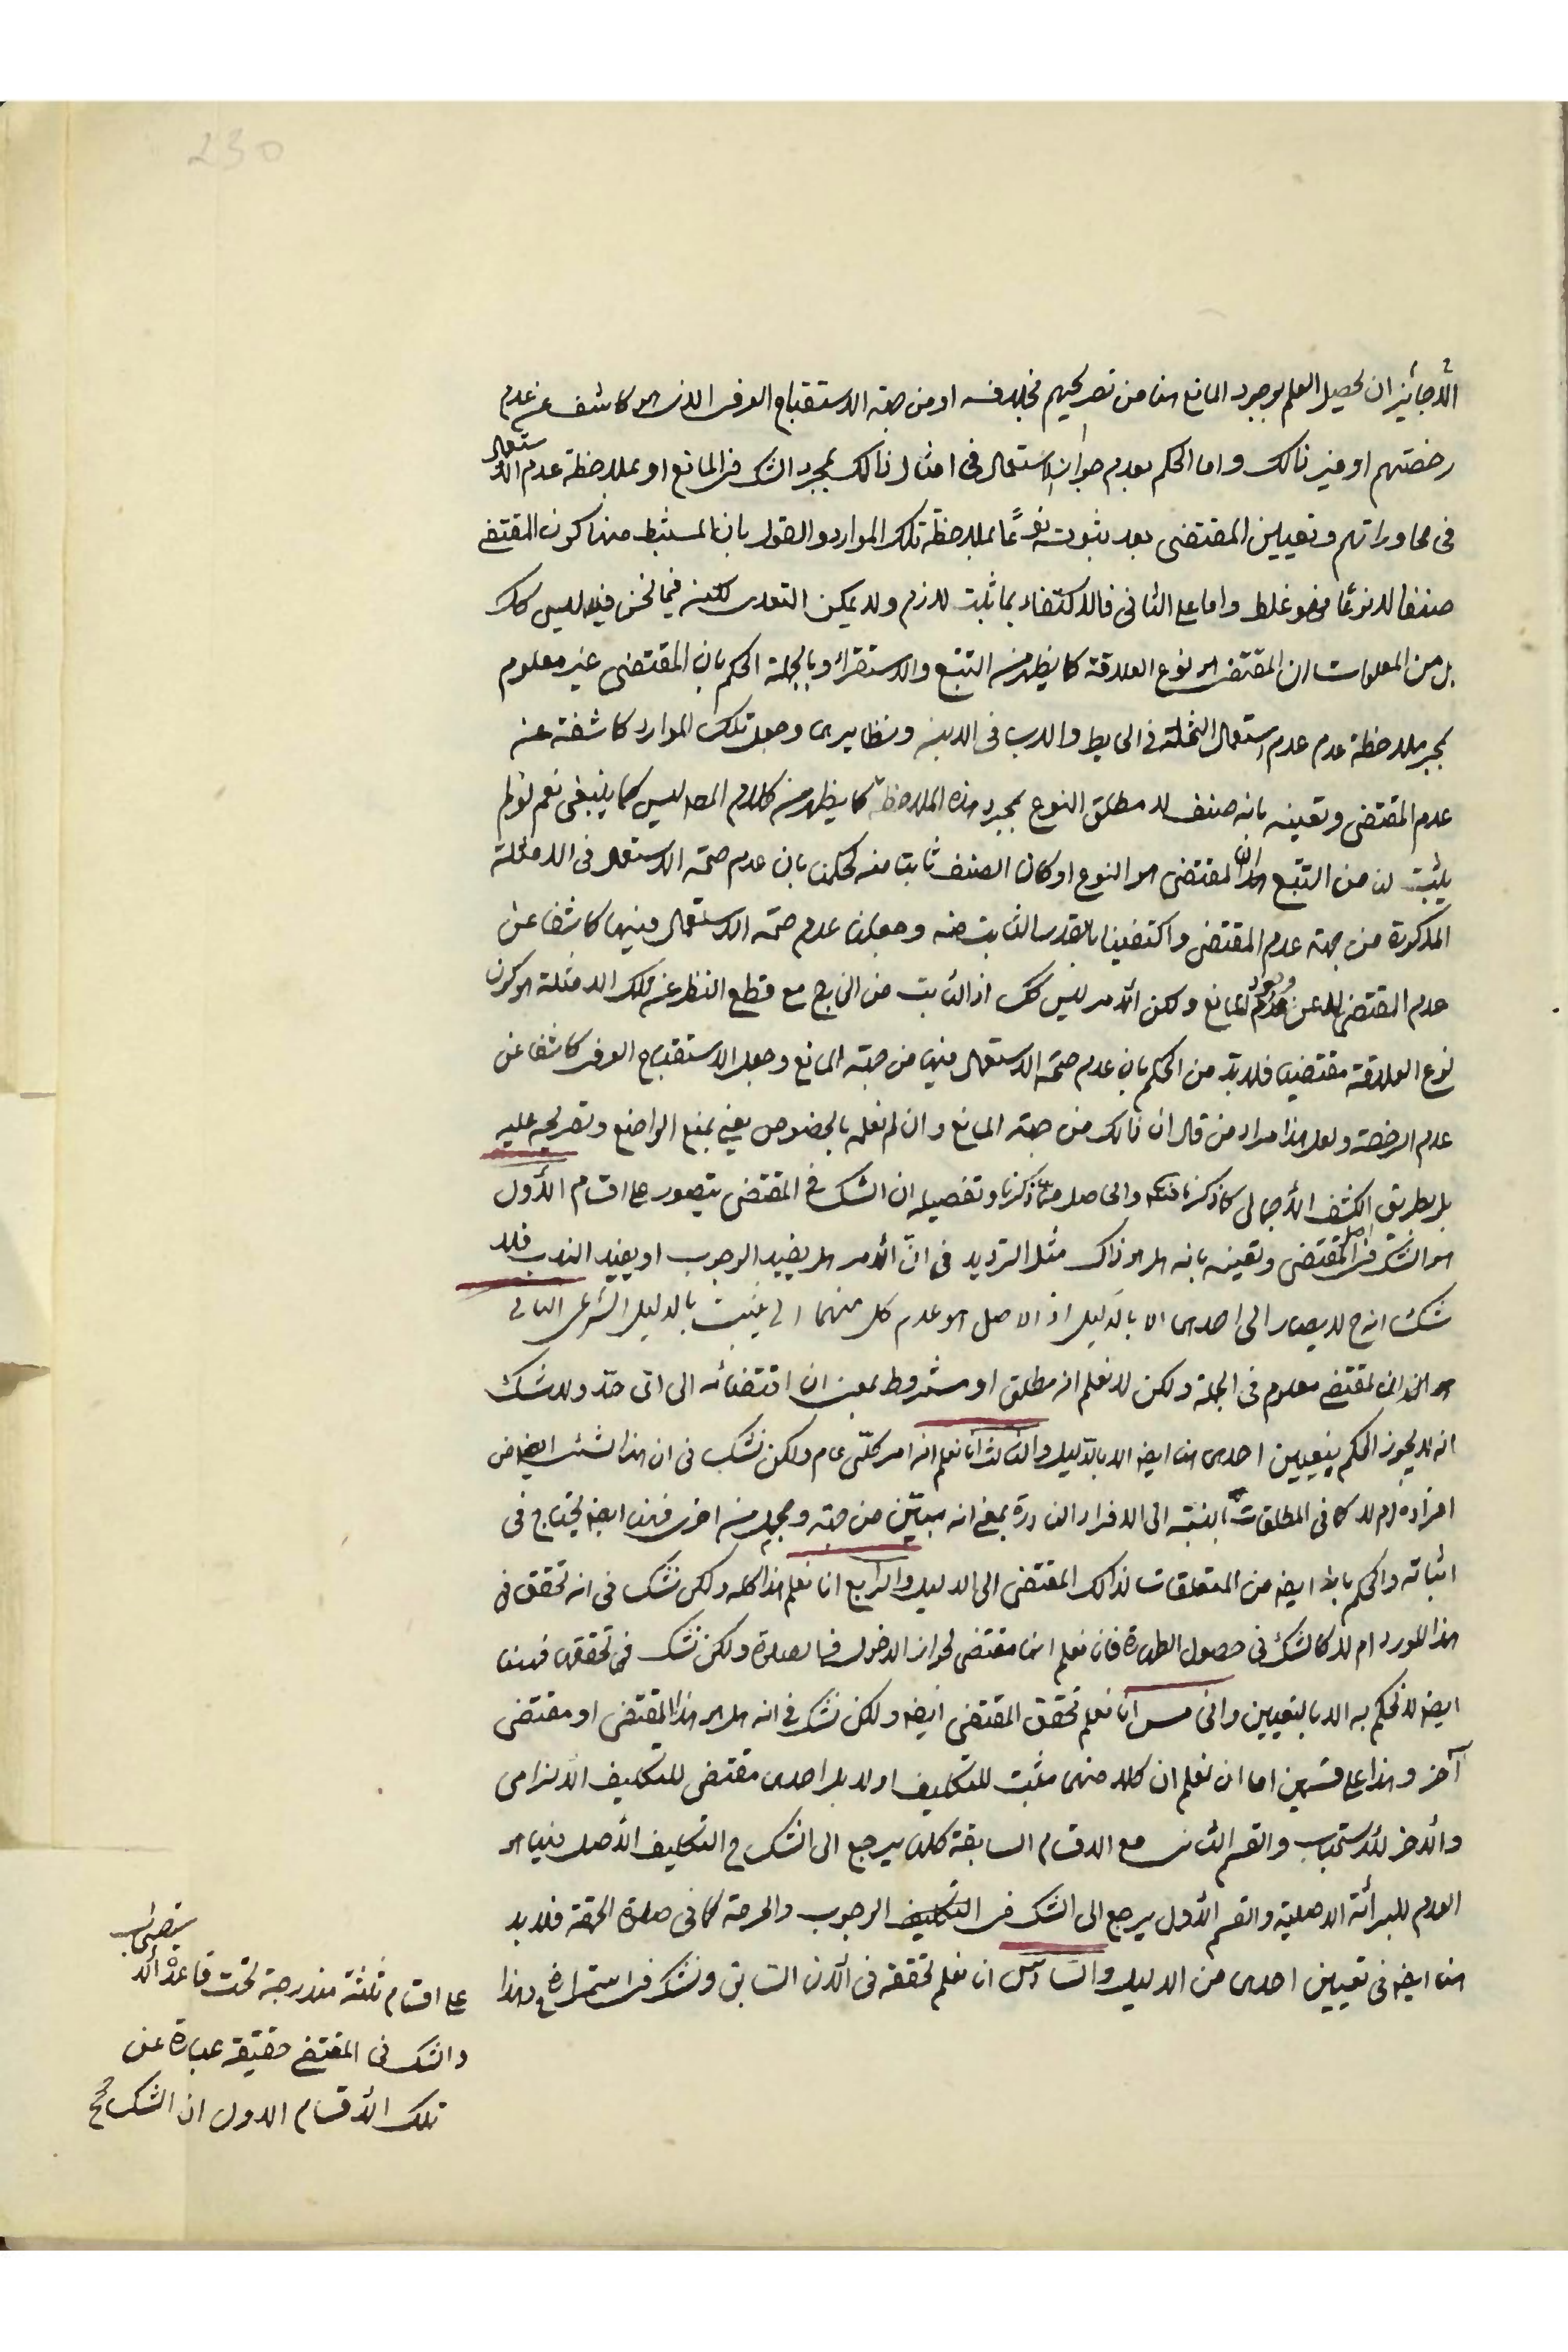 230
الا جائز ان يحصل العلم بوجود المانع هنا من تصريحهم بخلافه او من جهة الاستقباح العرفى الذى هو كاشف عن عدم
رخصتهم او غير ذالك واما الحكم بعدم جواز الاستعمال فى امثال ذالك بمجرد الشك فى المانع او بملاحظة عدم الاستعمال
فى محاوراتهم وتعيين المقتضى بعد ثبوته نوعًا بملاحظة تلك الموارد والقول بان المستنبط منها كون المقتضى
صنفا لا نوعًا فهو غلط واما على الثانى فالاكتفاء بما ثبت لازم ولا يمكن التعدى لكنه فيما نحن فيه ليس كك
بل من المعلومات ان المقتضى هو نوع العلاقة كما يظهر من التتبع والاستقراء وبالجملة الحكم بان المقتضى غير معلوم
بمجرد ملاحظة عدم عدم استعمال النخلة فى الحايط والاب فى الابن ونظايرها وجعل تلك الموارد كاشفة عن
عدم المقتضى وتعينه بانه صنف لا مطلق النوع بمجرد هذه الملاحظة كما يظهر من كلام المص ليس كما ينبغى نعم لو لم
يثبت لنا من التتبع ان المقتضى هو النوع او كان الصنف ثابتا منه لحكمنا بان عدم صحة الاستعمال فى الامثلة
المذكورة من جهة عدم المقتضى واكتفينا بالقدر الثابت منه وجعلنا عدم صحة الاستعمال فيها كاشفا عن
عدم المقتضى لا عن وجود المانع ولكن الأمر ليس كك اذ الثابت من الخارج مع قطع النظر عن تلك الامثلة هو كون
نوع العلاقة مقتضيا فلا بد من الحكم بان عدم صحة الاستعمال فيها من جهة المانع وجعل الاستقباح العرفى كاشفا عن
عدم الرخصة ولعل هذا مراد من قال ان ذالك من جهة المانع وان لم نعلمه بالخصوص يعنى بمنع الواضع وتصريحه عليه
بل بطريق الكشف الأجمالى كما ذكرنا والحاصل مما ذكرنا وتفصيله ان الشك فى المقتضى يتصور على اقسام الأول
هو الشك فى اصل المقتضى وتعينه بانه هل هو ذاك مثل الترديد فى انّ الأمر هل يفيد الوجوب او يفيد الندب فلا
شك انه ح لا يصار الى احدها الا بالدليل اذ الاصل هو عدم كل منهما الى يثبت بالدليل الشرعى الثانى
هو ان المقتضى معلوم فى الجملة ولكن لا نعلم انه مطلق او مشروط بمعنى ان اقتضائه الى اىّ حدّ ولا شك
انه لا يجوز الحكم بتعيين احدها هنا ايضا الا بالدليل والثالث انا نعلم انه امر كلّى عام ولكن نشك فى ان هذا الشئ ايضا من
افراده ام لا كما فى المطلقات بالنسبة الى الافراد النادرة بمعنى انه مبيّن من جهة ومجمل من اخرى فهنا ايضا يحتاج فى
اثباته والحكم بانه ايضا من المتعلقات لذالك المقتضى الى الدليل والرابع انا نعلم هذا كله ولكن نشك فى انه تحقق فى
هذا المورد ام لا كالشك فى حصول الطهارة فانا نعلم انها مقتضى لجواز الدخول فى الصلوة ولكن نشك فى تحققها فهنا
ايضا لا نحكم به الا بالتعيين والخامس انا نعلم تحقق المقتضى ايضا ولكن نشك فى انه هل هو هذا المقتضى او مقتضى
آخر وهذا على قسمين اما ان نعلم ان كلا منهما مثبت للتكليف اولا بل احدها مقتضى للتكليف الألزامى
والأخر للأستحباب والقسم الثانى مع الاقسام السابقة كلها يرجع الى الشك فى التكليف الأصل فيها هو
العدم للبرائة الاصلية والقسم الأول يرجع الى الشك فى التكليف الوجوب والحرمة كما فى صلوة الجمعة فلا بد
هنا ايضا فى تعيين احدها من الدليل والسادس ان نعلم تحققه فى الأن السابق ونشك فى استمراره وهذا
على اقسام ثلثة مندرجة تحت قاعدة الاستصحاب
والشك فى المقتضى حقيقة عبارة عن
تلك الأقسام الاول ان الشك ح